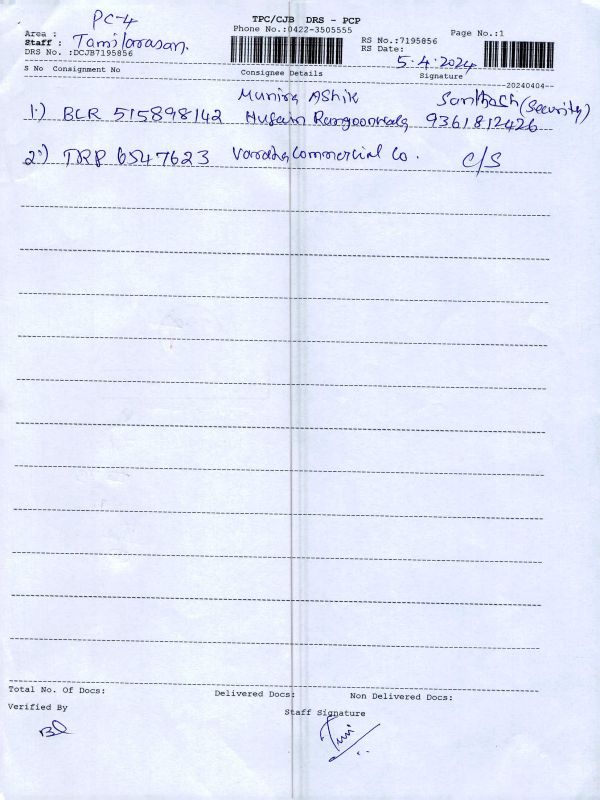 PC-4
TPC/CJB DRS - PCP
Area :
Phone No.:0422-3505555
Page No.:1
Staff : Tamilarasan.
RS No.:7195856
DRS No. :DCJB7195856
RS Date:
5.4.2024
S No Consignment No
Consignee Details
Signature
--20240404--
Munira Ashik
Santhosh (Security)
1.) BLR 515898142 Husein Rangoonwala 9361812426
2.) TRP 6547623 Varadha Commercial Co. C/S
Total No. Of Docs:
Delivered Docs:
Non Delivered Docs:
Verified By
Staff Signature